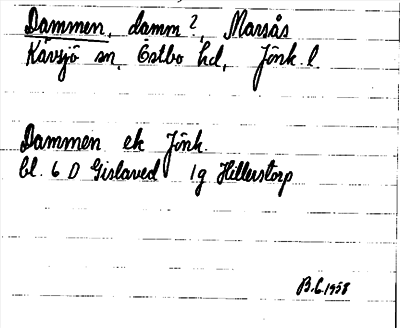 Dammen, damm?, Marsås
Kävsjö sn, Östbo hd, Jönk. l.
Dammen ek Jönk.
bl. 6 D Gislaved 1g Hillerstorp
B.G. 1958